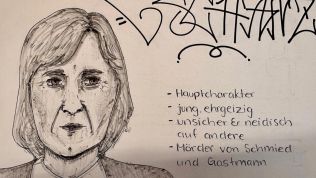 - Hauptcharakter
- jung, ehrgeizig
- unsicher & neidisch
auf andere
- Mörder von Schmied
und Gastmann